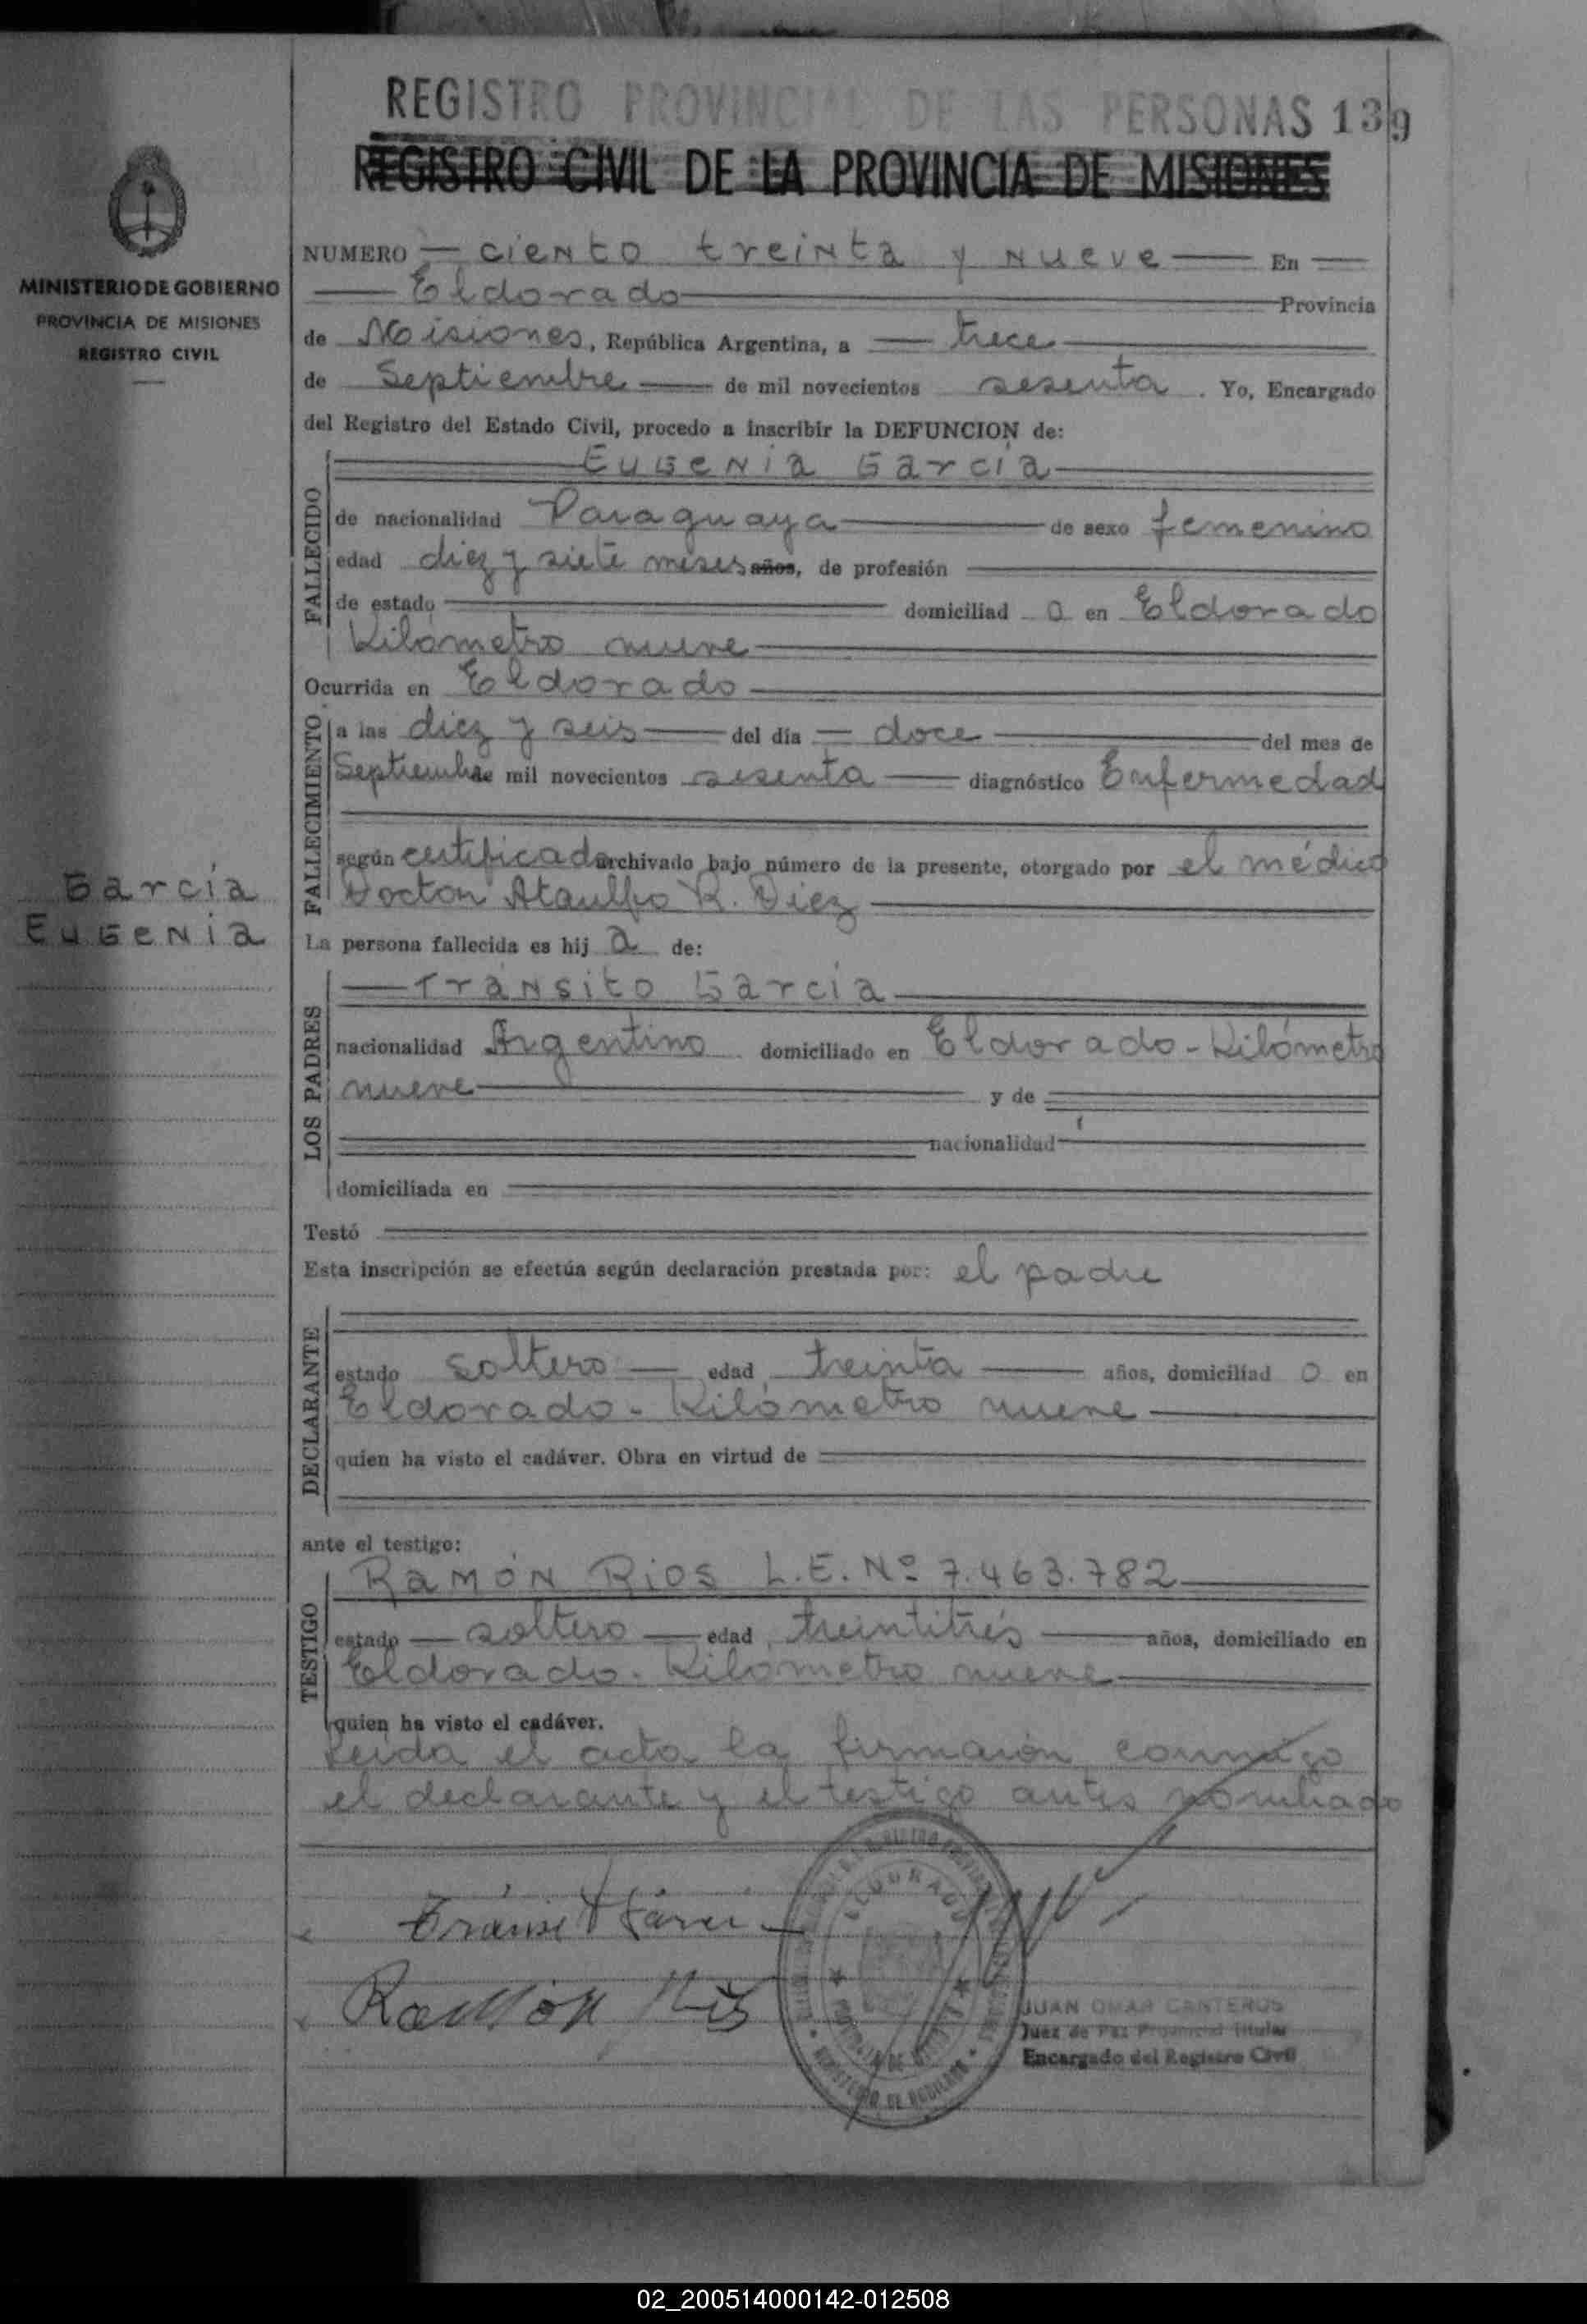 REGISTRO PROVINCIAL DE LAS PERSONAS 139
REGISTRO CIVIL DE LA PROVINCIA DE MISIONES
MINISTERIO DE GOBIERNO
PROVINCIA DE MISIONES
REGISTRO CIVIL
NUMERO ciento treinta y nueve En
Eldorado Provincia
de Misiones, República Argentina, a trece
de Septiembre de mil novecientos sesenta. Yo, Encargado
del Registro del Estado Civil, procedo a inscribir la DEFUNCION de:
FALLECIDO
Eugenia García
de nacionalidad Paraguaya de sexo femenino
edad diez y siete meses años, de profesión
de estado domiciliad o en Eldorado
Kilómetro nueve
Ocurrida en Eldorado
FALLECIMIENTO
a las diez y seis del día doce del mes de
Septiembre mil novecientos sesenta diagnóstico Enfermedad
según certificado archivado bajo número de la presente, otorgado por el médico
Doctor Ataulfo R. Diez
García
Eugenia
La persona fallecida es hij a de:
LOS PADRES
Tránsito García
nacionalidad Argentino domiciliado en Eldorado - Kilómetro
nueve y de
nacionalidad
domiciliada en
Testó
Esta inscripción se efectúa según declaración prestada por: el padre
DECLARANTE
estado soltero edad treinta años, domiciliad o en
Eldorado - Kilómetro nueve
quien ha visto el cadáver. Obra en virtud de
ante el testigo:
TESTIGO
Ramón Rios L.E. Nº 7.463.782
estado soltero edad treintitrés años, domiciliado en
Eldorado - Kilómetro nueve
quien ha visto el cadáver.
Leida el acta la firmarón conmigo
el declarante y el testigo antes nombrado
Ramón
ELDORADO
JUAN OMAR CANTEROS
Juez de Paz Provincial Titular
Encargado del Registro Civil
02_200514000142-012508